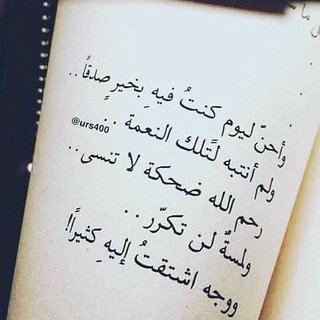 وأحنّ ليوم كنتُ فيهِ بخيرٍ صدقًا..
ولم أنتبه لتَلك النعمة ..
@urs400
رحم الله ضحكة لا تنسى..
ولمسةٌ لن تكرّر..
ووجه اشتقتُ إليهِ كثيرًا!